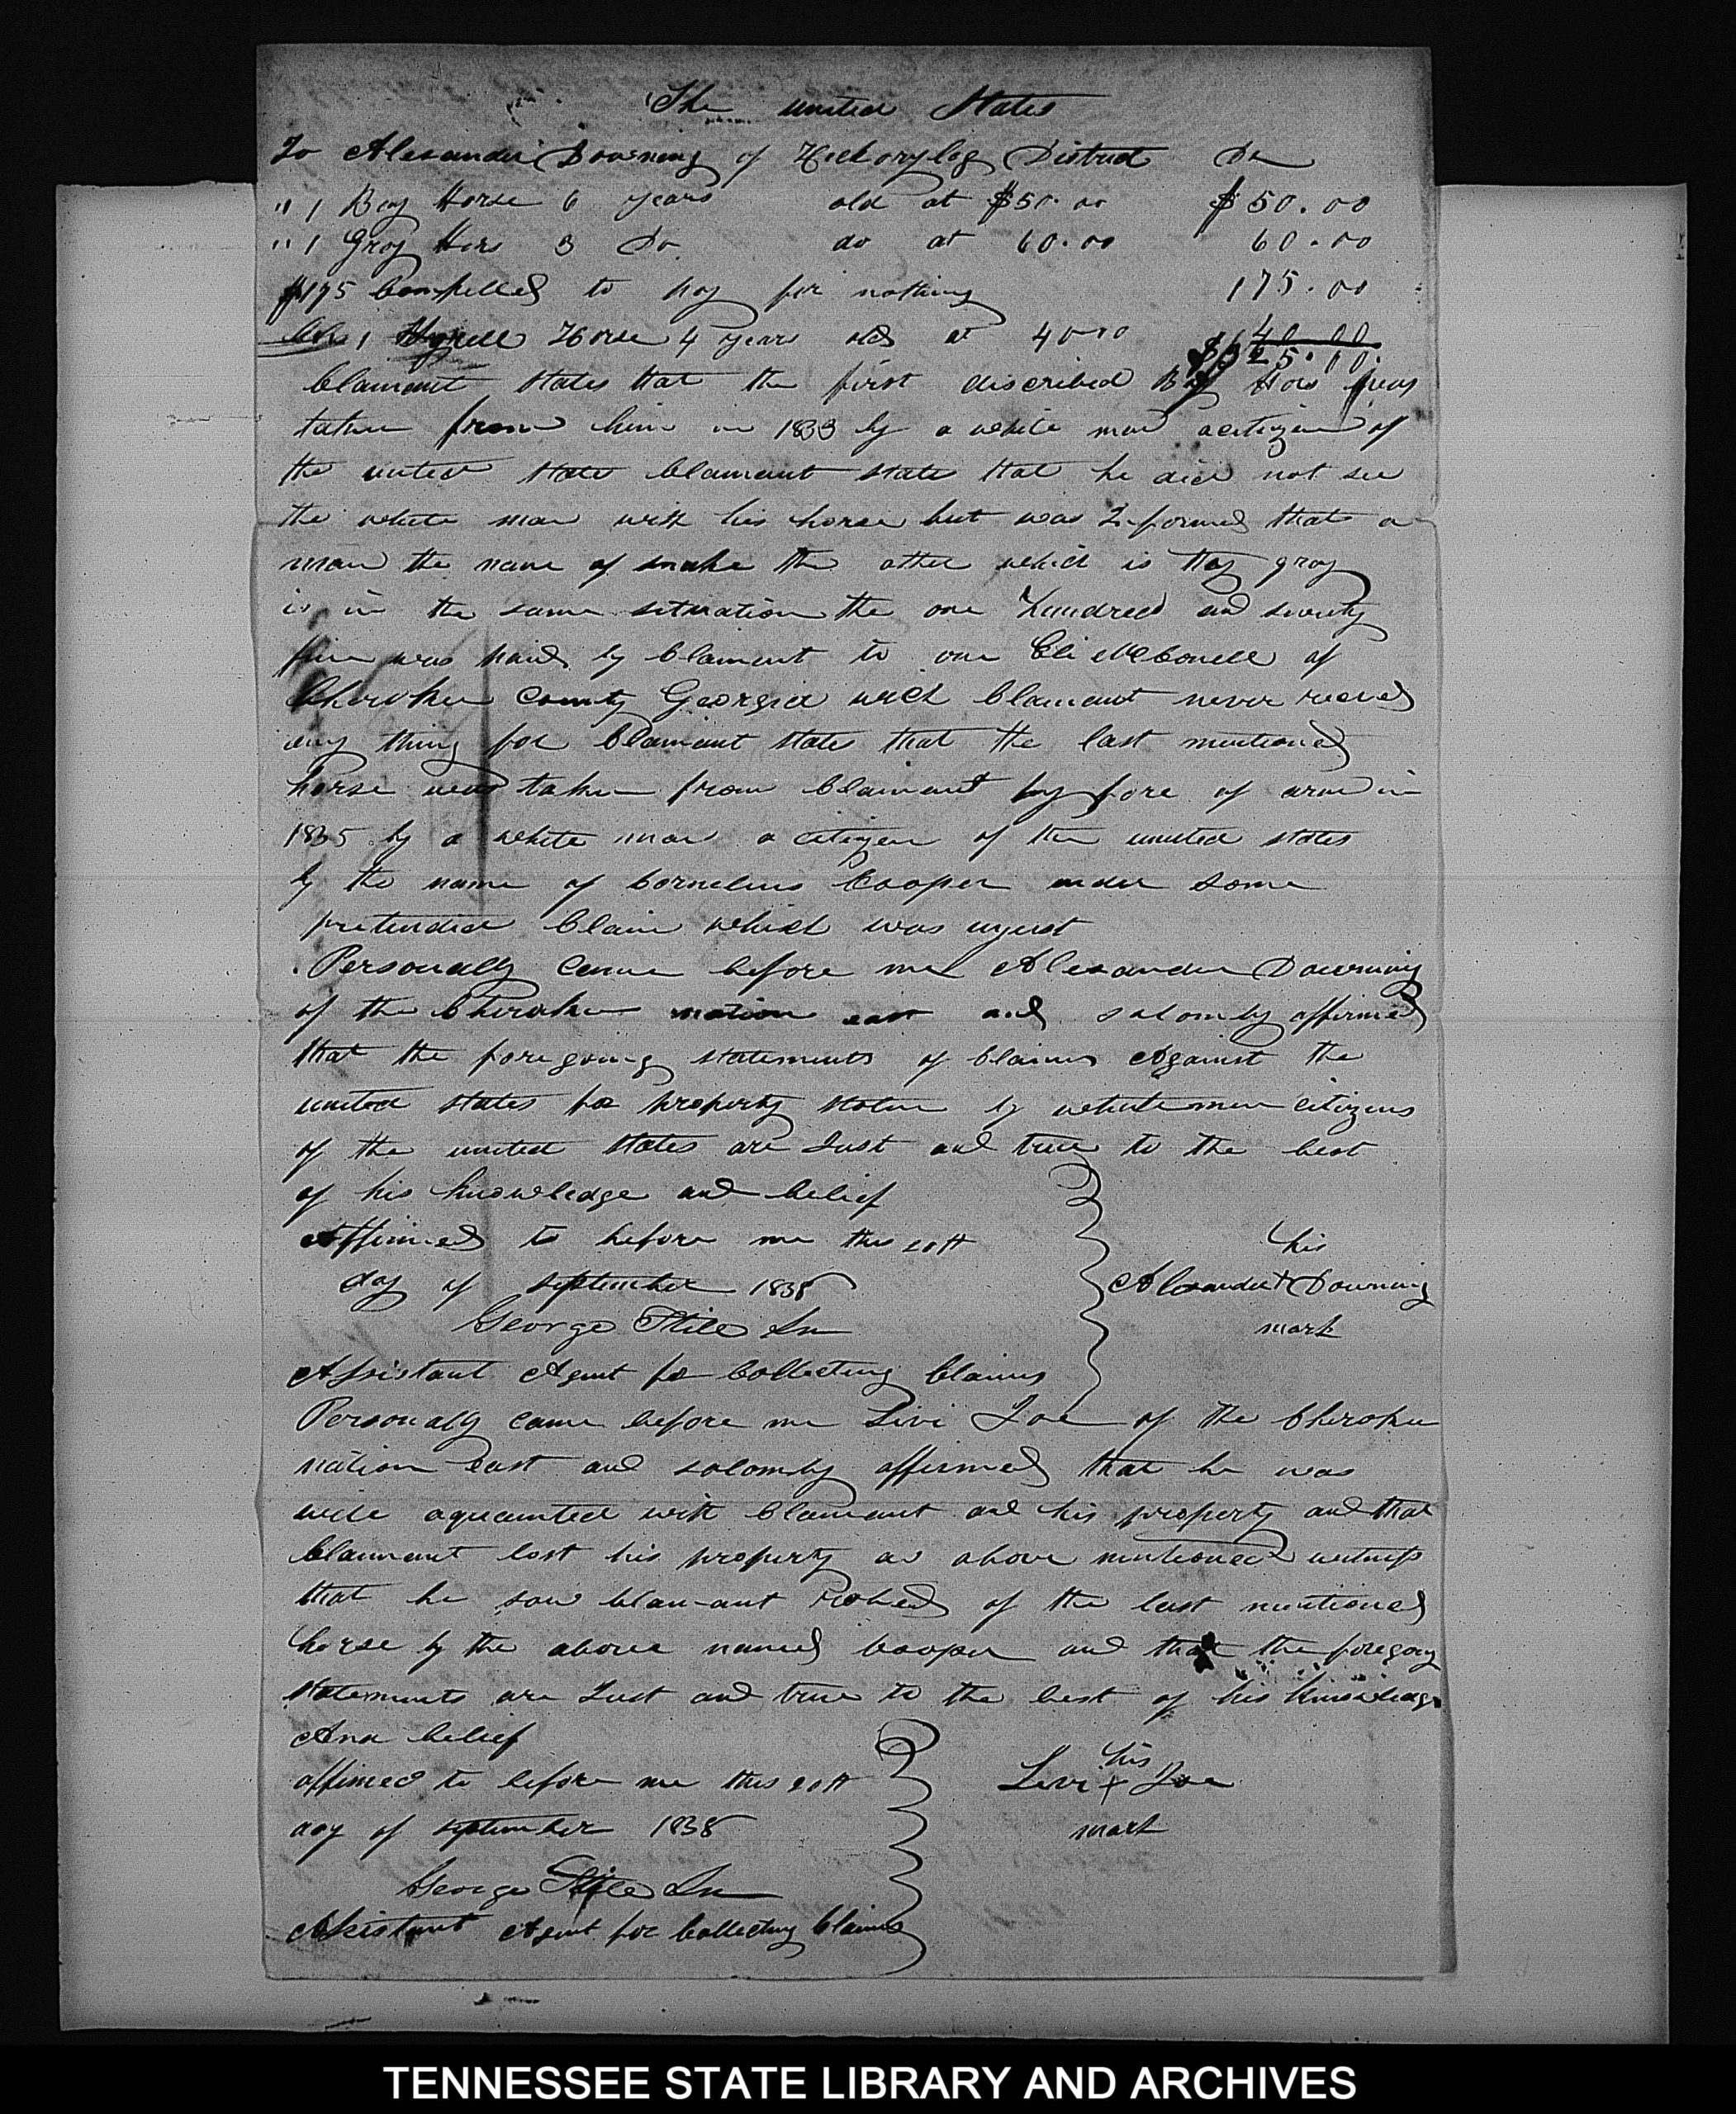 The united States
To Alexander Downing of Hickorylog District Dr
" 1 Bay Horse 6 years old at $50.00 $50.00
" 1 Gray Hors 3 Do do at 60.00 60.00
$175 Compelled to pay for nothing 175.00
1 Horse 4 years old at 40.00 40.00
$325.00
Clamant states that the first discribed Bay Hors was
taken from him in 1833 by a white man a citizen of
the united state Clamant state that he did not see
the white man with his horse but was Informed that a
man the name of the other which is the gray
is in the same situation the one Hundred and seventy
five was paid by Clamant to one Eli McConell of
Cherokee County Georgia wich Clamant never recived
any thing for Clamant states that the last mentioned
horse was taken from Clamant by fore of arms in
1835 by a white man a citizen of the united states
by the name of Cornelius Cooper under some
pretended Claim which was unjust
Personally Came before me Alexander Downing
of the Cherokee nation east and solomly affirmed
that the foregoing statements of Claims Against the
united states for property stolen by white men citizens
of the united states are Just and true to the best
of his knowledge and belief
Affirmed to before me this 20th
day of September 1838
his
Alexander + Downing
mark
George Jr
Assistant Agent for Collecting Claims
Personally came before me Livi Joe of the Cherokee
nation east and solomly affirmed that he was
well aquainted with Clamant and his property and that
Clamant lost his property as above mentioned witness
that he saw Clamant Robed of the last mentioned
horse by the above named Cooper and that the foregoing
statements are Just and true to the best of his knowledge
And belief
affirmed to before me this 20th
day of September 1838
his
Levi + Joe
mark
George Jr
Assistant Agent for Collecting Claims
TENNESSEE STATE LIBRARY AND ARCHIVES